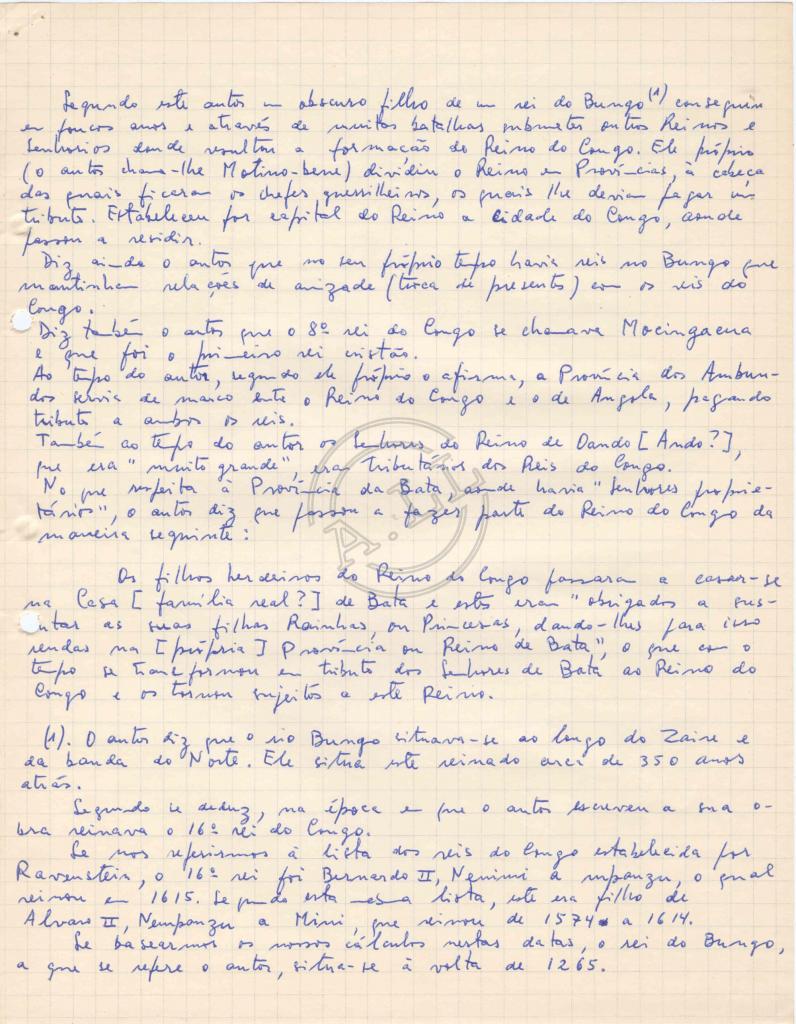 Segundo este autor um obscuro filho de um rei do Bungo (1) conseguiu
em poucos anos e através de muitas batalhas submeter outros Reinos e
Senhorios donde resultou a formação do Reino do Congo. Ele próprio
(o autor chama-lhe Motino-bene) dividiu o Reino em Províncias, à cabeça
das quais ficaram os chefes guerrilheiros, os quais lhe deviam pagar um
tributo. Estabeleceu por capital do Reino a cidade do Congo, aonde
passou a residir.
Diz ainda o autor que no seu próprio tempo havia reis no Bungo que
mantinham relações de amizade (troca de presentes) com os reis do
Congo.
Diz também o autor que o 8º rei do Congo se chamava Mocingacua
e que foi o primeiro rei cristão.
Ao tempo do autor, segundo ele próprio o afirma, a Província dos Ambun-
dos servia de marco entre o Reino do Congo e o de Angola, pagando
tributo a ambos os reis.
Também ao tempo do autor os Senhores do Reino de Oando [Ando?],
que era "muito grande", eram tributários dos Reis do Congo.
No que respeita à Província da Bata, aonde havia "Senhores proprie-
tários", o autor diz que passou a fazer parte do Reino do Congo da
maneira seguinte:
Os filhos herdeiros do Reino do Congo passaram a casar-se
na Casa [família real?] de Bata e estes eram "obrigados a sus-
tentar as suas filhas Rainhas, ou Princesas, dando-lhes para isso
rendas na [própria] Província ou Reino de Bata", o que com o
tempo se transformou em tributo dos Senhores de Bata ao Reino do
Congo e os tornou sujeitos a este Reino.
(1). O autor diz que o rio Bungo situava-se ao longo do Zaire e
da banda do Norte. Ele situa este reinado cerca de 350 anos
atrás.
Segundo se deduz, na época em que o autor escreveu a sua o-
bra reinava o 16º rei do Congo.
Se nos referirmos à lista dos reis do Congo estabelecida por
Ravenstein, o 16º rei foi Bernardo II, Nenimi a mpanzu, o qual
reinou em 1615. Segundo esta mesma lista, este era filho de
Alvaro II, Nempanzu a Mini, que reinou de 1574 a 1614.
Se basearmos os nossos cálculos nestas datas, o rei do Bungo,
a que se refere o autor, situa-se à volta de 1265.